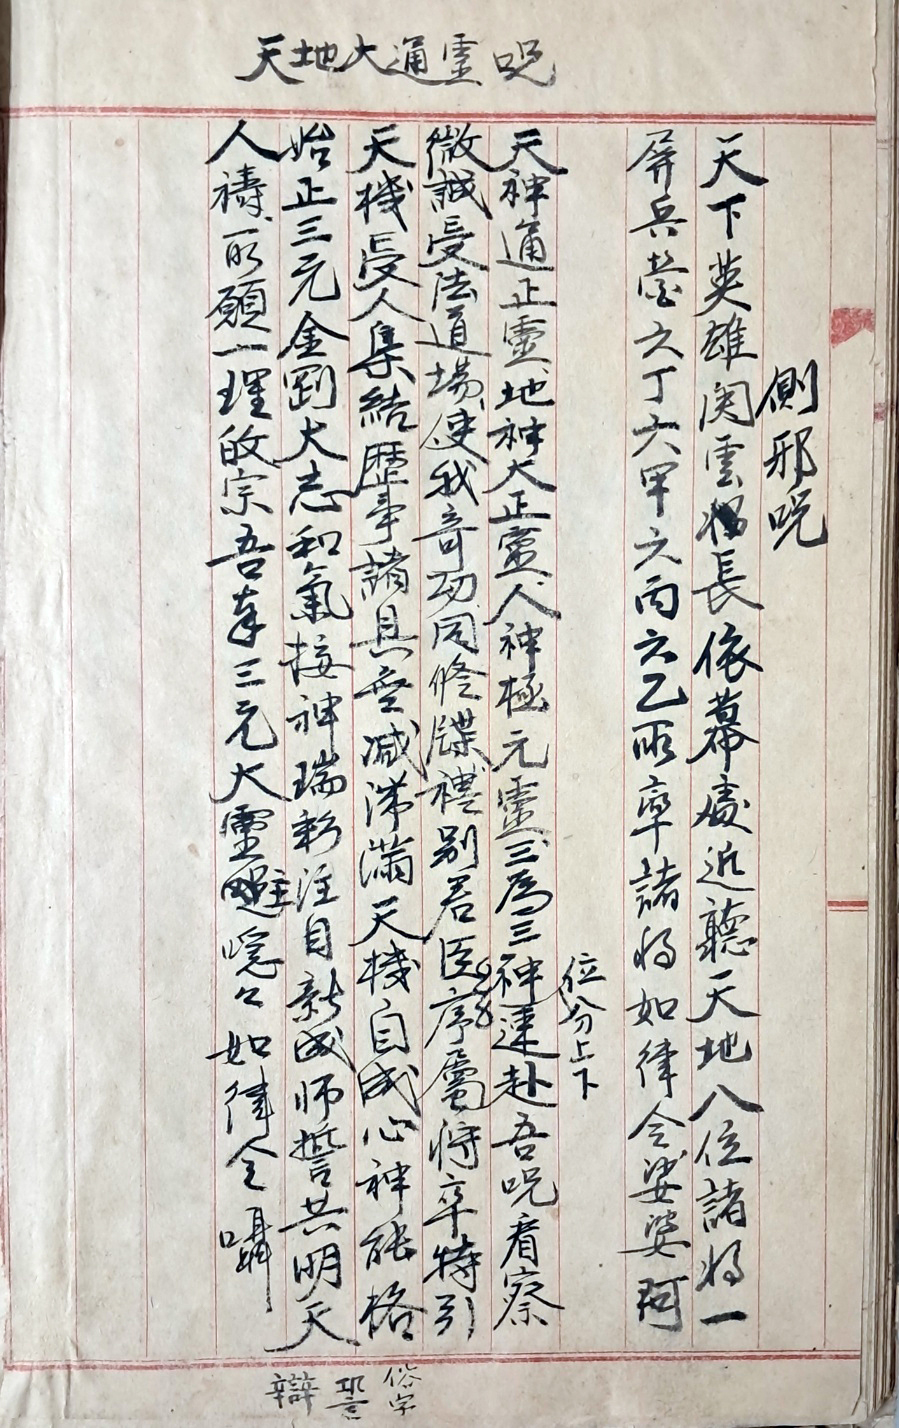 天地大通靈咒
側邪咒
天下英雄関雲長依幕處近聽天地八位諸將一
屏兵營六丁六甲六丙六乙所率諸將如律令娑婆訶
位分上下
天神通正靈地神大正靈人神極元靈三為三神速赴吾咒看察
微誠受法道場使我奇功同修牒禮別君臣序屬将卒特引
天機受人集結歷事諸具無減沛滿天機自成心神能格
始正三元金剛大志和氣接神瑞彩注目新成師誓共明天
人禱所願一理的宗吾奉三元大靈咒如律令囁
俗字
辯